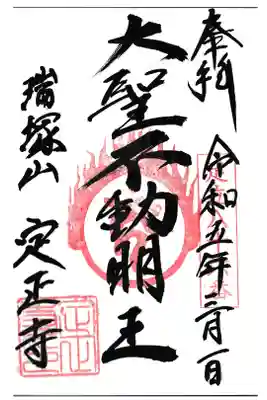 奉拝
令和五年二月一日
大聖不動明王
瑞塚山 定正寺